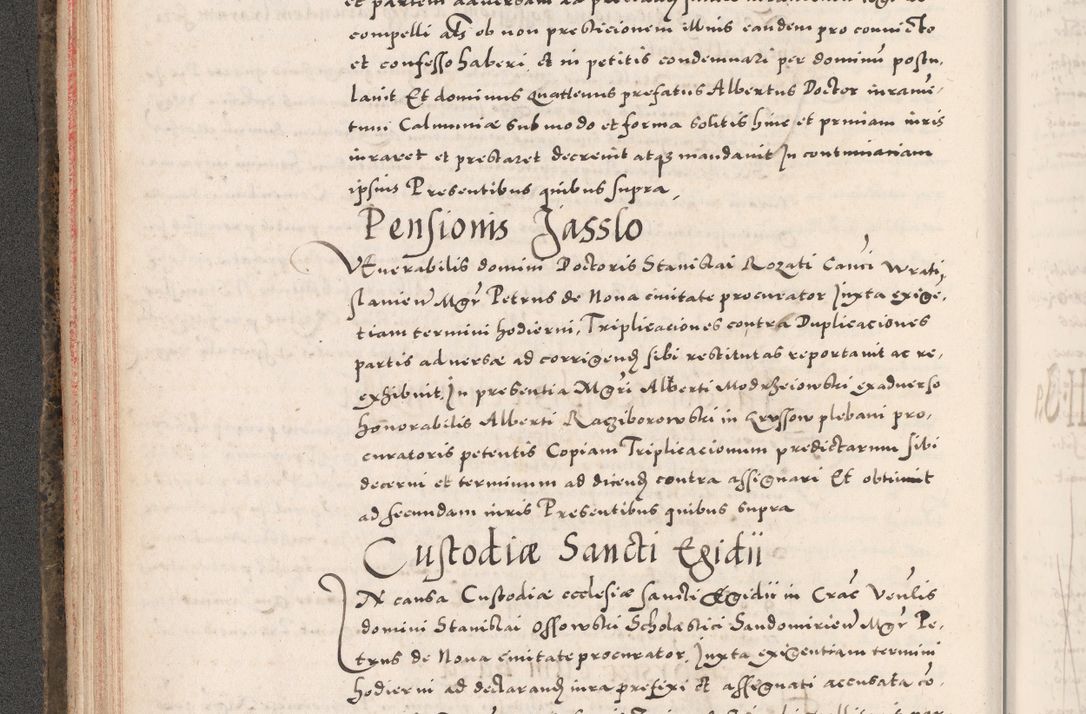 et partem adversam ad
compelli als ob non presticionem illius eandem pro convicto
et confesso haberi et in petitis condemnari per dominum postu,
lavit Et dominus quatenus prefatus Albertus Doctor iuramē,
tum Calumniæ sub modo et forma solitis hinc et primam iuris
iuraret et prestaret decrevit atq3 mandavit In contumaciam
ipsius Presentibus quibus supra,
Pensionis Jasslo
VEnerabilis domini Doctoris Stanislai Rozati Canci Wrati,
slavien Mgr Petrus de Nova civitate procurator Juxta exige,
tiam termini hodierni, Triplicaciones contra Duplicaciones
partis adversæ ad corrigend sibi restitutas reportavit ac re,
exhibuit, In presentia Mgri Alberti Modrzeiowski ex adverso
honorabilis Alberti Racziborowski in Kryssow plebani pro,
curatoris petentis Copiam Triplicacionum predictarum sibi
decerni et terminum ad dicend contra assignari Et obtinuit
ad secundam iuris Presentibus quibus supra
Custodiæ Sancti Egidii
IN causa Custodiæ ecclesiæ sancti Egidii in Crac Venlis
domini Stanislai Ossowski Scholastici Sandomirien Mgr Pe,
trus de Nova civitate procurator, Juxta exigentiam termini
hodierni ad declarand iura prefixi et assignati accusata co,